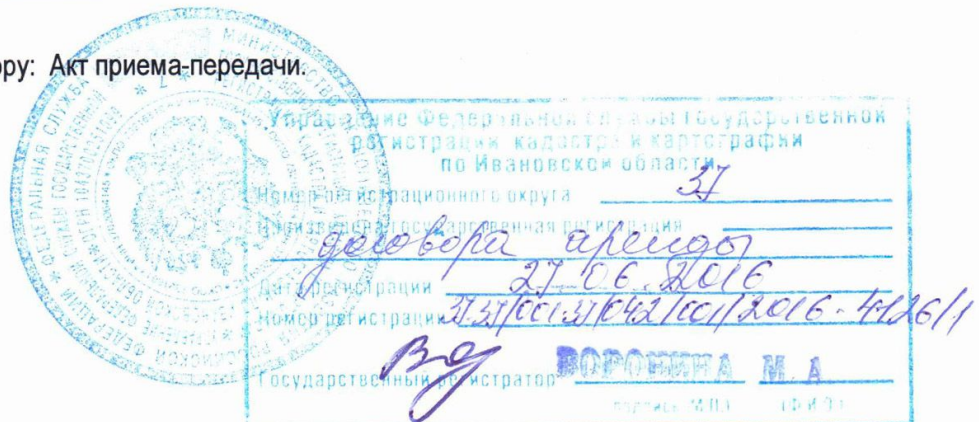 ору: Акт приема-передачи.
Управление Федеральной службы государственной
регистрации, кадастра и картографии
по Ивановской области
Номер регистрационного округа 37
Произведена государственная регистрация
договора аренды
Дата регистрации 27.06.2016
Номер регистрации 37-37/001-37/042/001/2016-4126/1
Государственный регистратор ВОРОНИНА М. А
подпись, М.П.) (Ф.И.О.)
ФЕДЕРАЛЬНАЯ СЛУЖБА
МИНИСТЕРСТВО
РОССИЙСКОЙ ФЕДЕРАЦИИ